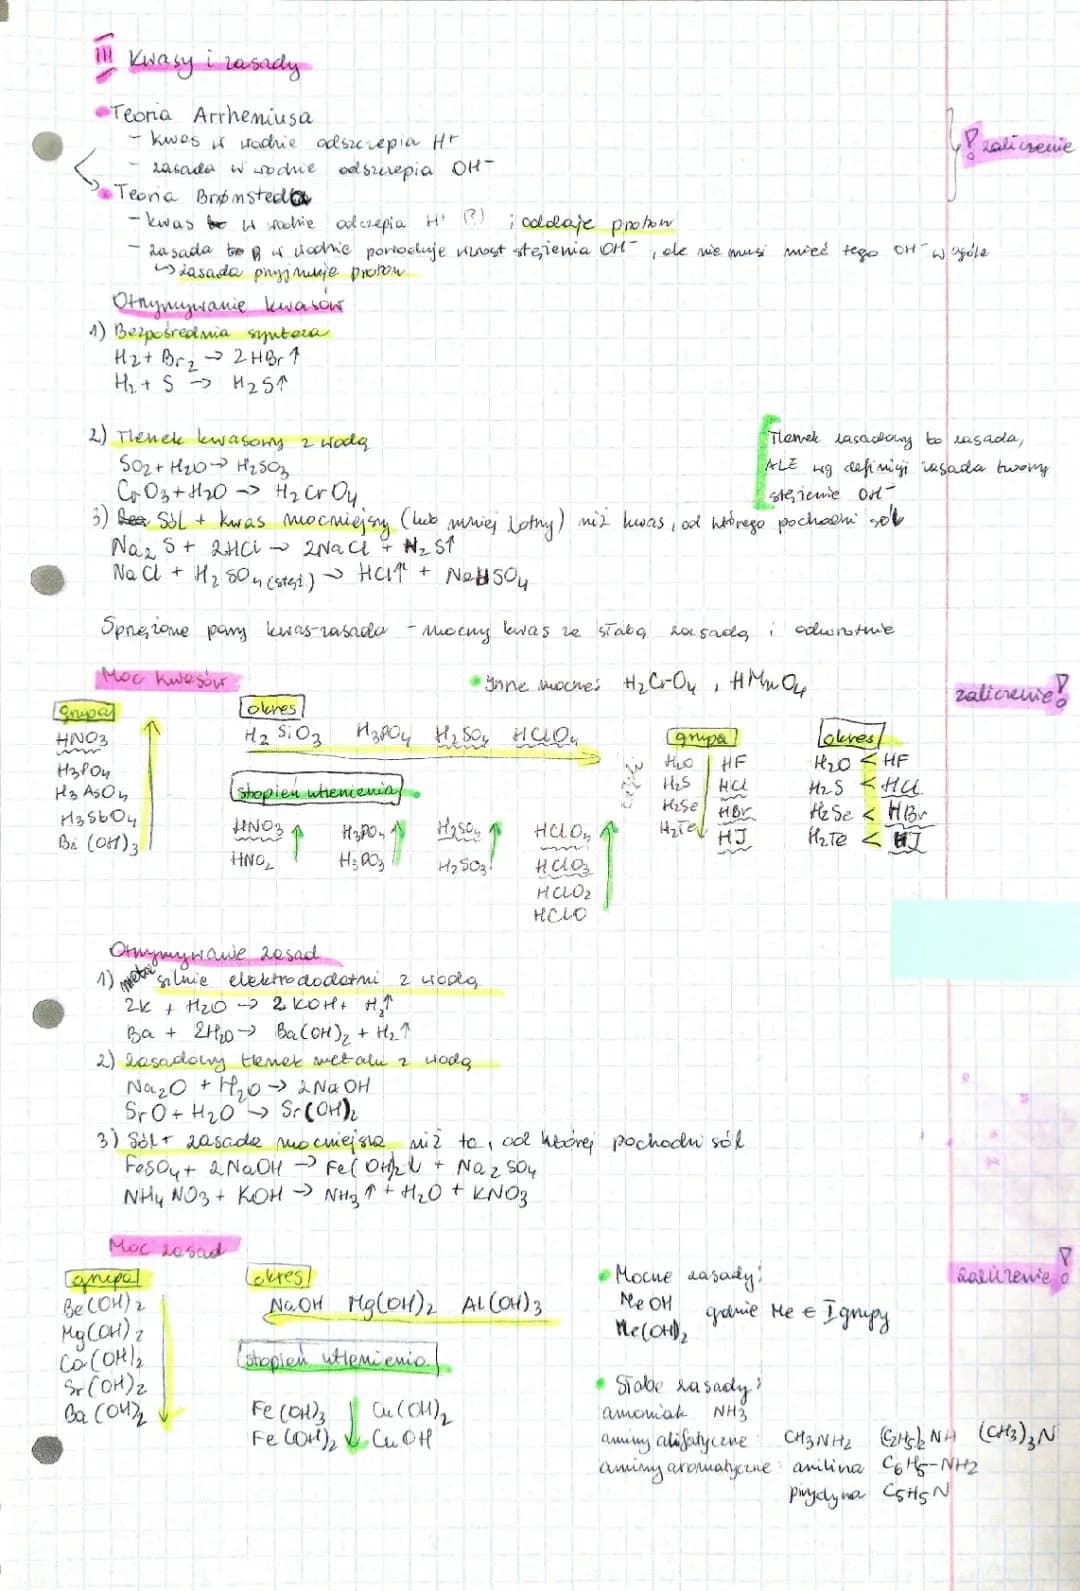 III Kwasy i zasady
Teoria Arrheniusa
- kwas w wodzie odszczepia H+
- zasada w wodzie odszczepia OH-
! zaliczenie
Teoria Brønsteda
- kwas w wodzie odczepia H+ (?) ; oddaje proton
- zasada w wodzie powoduje wzrost stężenia OH-, ale nie musi mieć tego OH- w ogóle
↳ zasada przyjmuje proton
Otrzymywanie kwasów
1) Bezpośrednia synteza
H2 + Br2 → 2HBr↑
H2 + S → H2S↑
2) Tlenek kwasowy z wodą
SO2 + H2O → H2SO3
CrO3 + H2O → H2CrO4
Tlenek zasadowy to zasada,
ALE wg definicji zasada tworzy
stężenie OH-
3) Sól + kwas mocniejszy (lub mniej lotny) niż kwas, od którego pochodzi sól
Na2S + 2HCl → 2NaCl + H2S↑
NaCl + H2SO4 (stęż.) → HCl↑ + NaHSO4
Sprzężone pary kwas-zasada - mocny kwas ze słabą zasadą i odwrotnie
Moc kwasów
• Inne mocne: H2CrO4, HMnO4
zaliczenie!
grupa
HNO3
H3PO4
H3AsO4
H3SbO4
Bi(OH)3
okres
H2SiO3 H3PO4 H2SO4 HClO4
stopień utlenienia
HNO3 H3PO4 H2SO4 HClO4
HNO2 H3PO3 H2SO3 HClO3
HClO2
HClO
grupa
H2O HF
H2S HCl
H2Se HBr
H2Te HJ
okres
H2O < HF
H2S < HCl
H2Se < HBr
H2Te < HJ
Otrzymywanie zasad
1) metal silnie elektrododatni z wodą
2K + H2O → 2KOH + H2↑
Ba + 2H2O → Ba(OH)2 + H2↑
2) Zasadowy tlenek metalu z wodą
Na2O + H2O → 2NaOH
SrO + H2O → Sr(OH)2
3) Sól + zasada mocniejsza niż ta, od której pochodzi sól
FeSO4 + 2NaOH → Fe(OH)2↓ + Na2SO4
NH4NO3 + KOH → NH3↑ + H2O + KNO3
Moc zasad
zaliczenie!
grupa
Be(OH)2
Mg(OH)2
Ca(OH)2
Sr(OH)2
Ba(OH)2
okres
NaOH Mg(OH)2 Al(OH)3
stopień utlenienia
Fe(OH)3 Cu(OH)2
Fe(OH)2 CuOH
• Mocne zasady:
MeOH
Me(OH)2
gdzie Me ∈ I grupy
• Słabe zasady:
amoniak NH3
aminy alifatyczne: CH3NH2 (C2H5)2NH (CH3)3N
aminy aromatyczne: anilina C6H5-NH2
pirydyna C5H5N